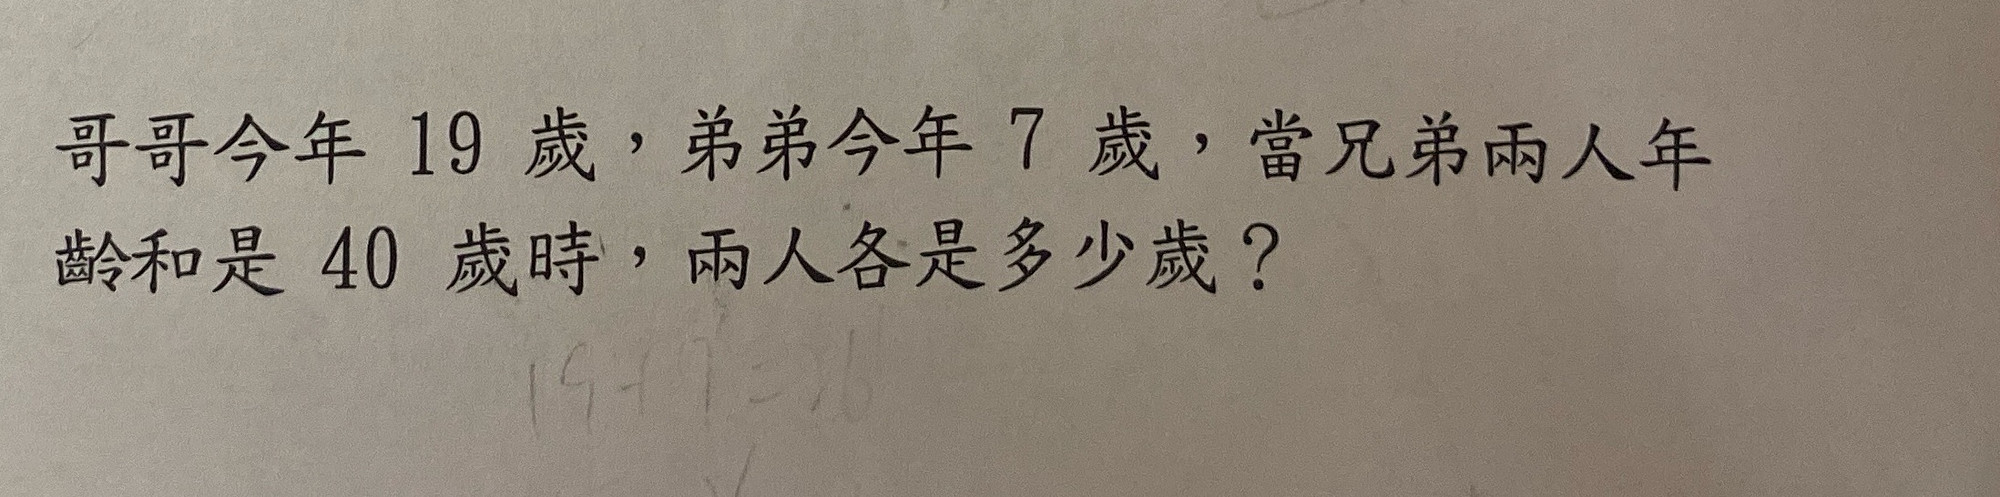 哥哥今年 19 歲，弟弟今年 7 歲，當兄弟兩人年
齡和是 40 歲時，兩人各是多少歲？
19+7=26